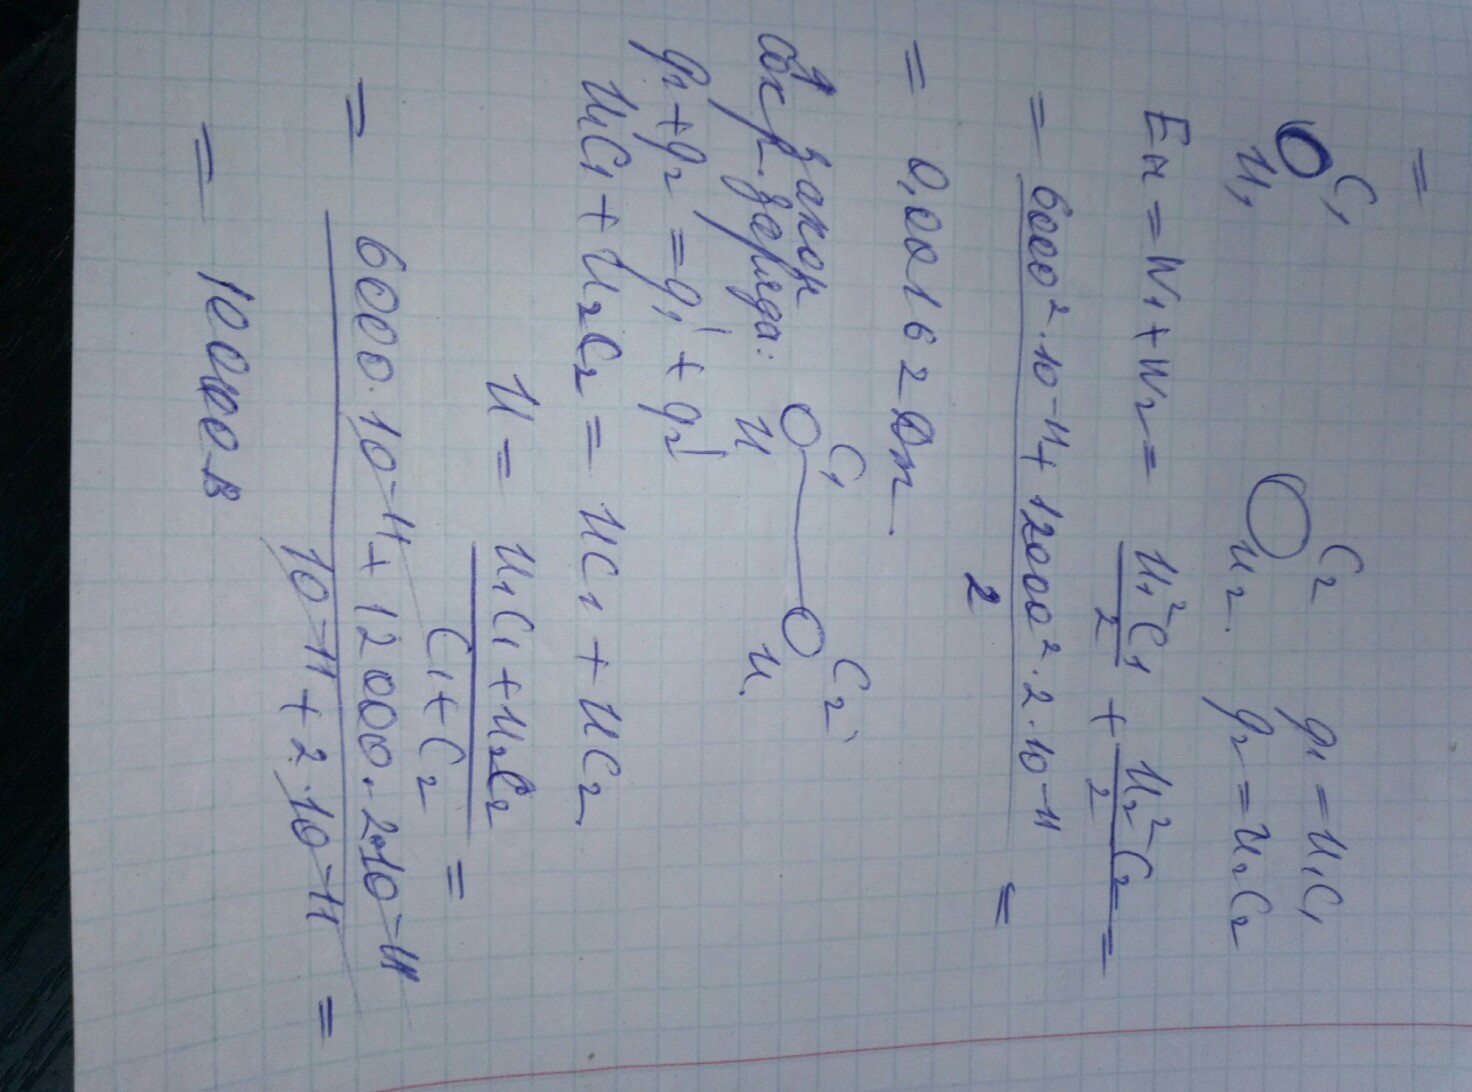 =
C₁ C₂ q₁ = U₁C₁
U₁ U₂. q₂ = U₂C₂
Eн = W₁ + W₂ = U₁²C₁/2 + U₂²C₂/2 =
= (6000²·10⁻¹¹ + 12000²·2·10⁻¹¹)/2 =
= 0,00162 Дж.
Закон C₁ C₂
сохр. заряда: U U
q₁ + q₂ = q₁' + q₂'
U₁C₁ + U₂C₂ = UC₁ + UC₂
U = (U₁C₁ + U₂C₂)/(C₁ + C₂) =
= (6000·10⁻¹¹ + 12000·2·10⁻¹¹)/(10⁻¹¹ + 2·10⁻¹¹) =
= 10000 В